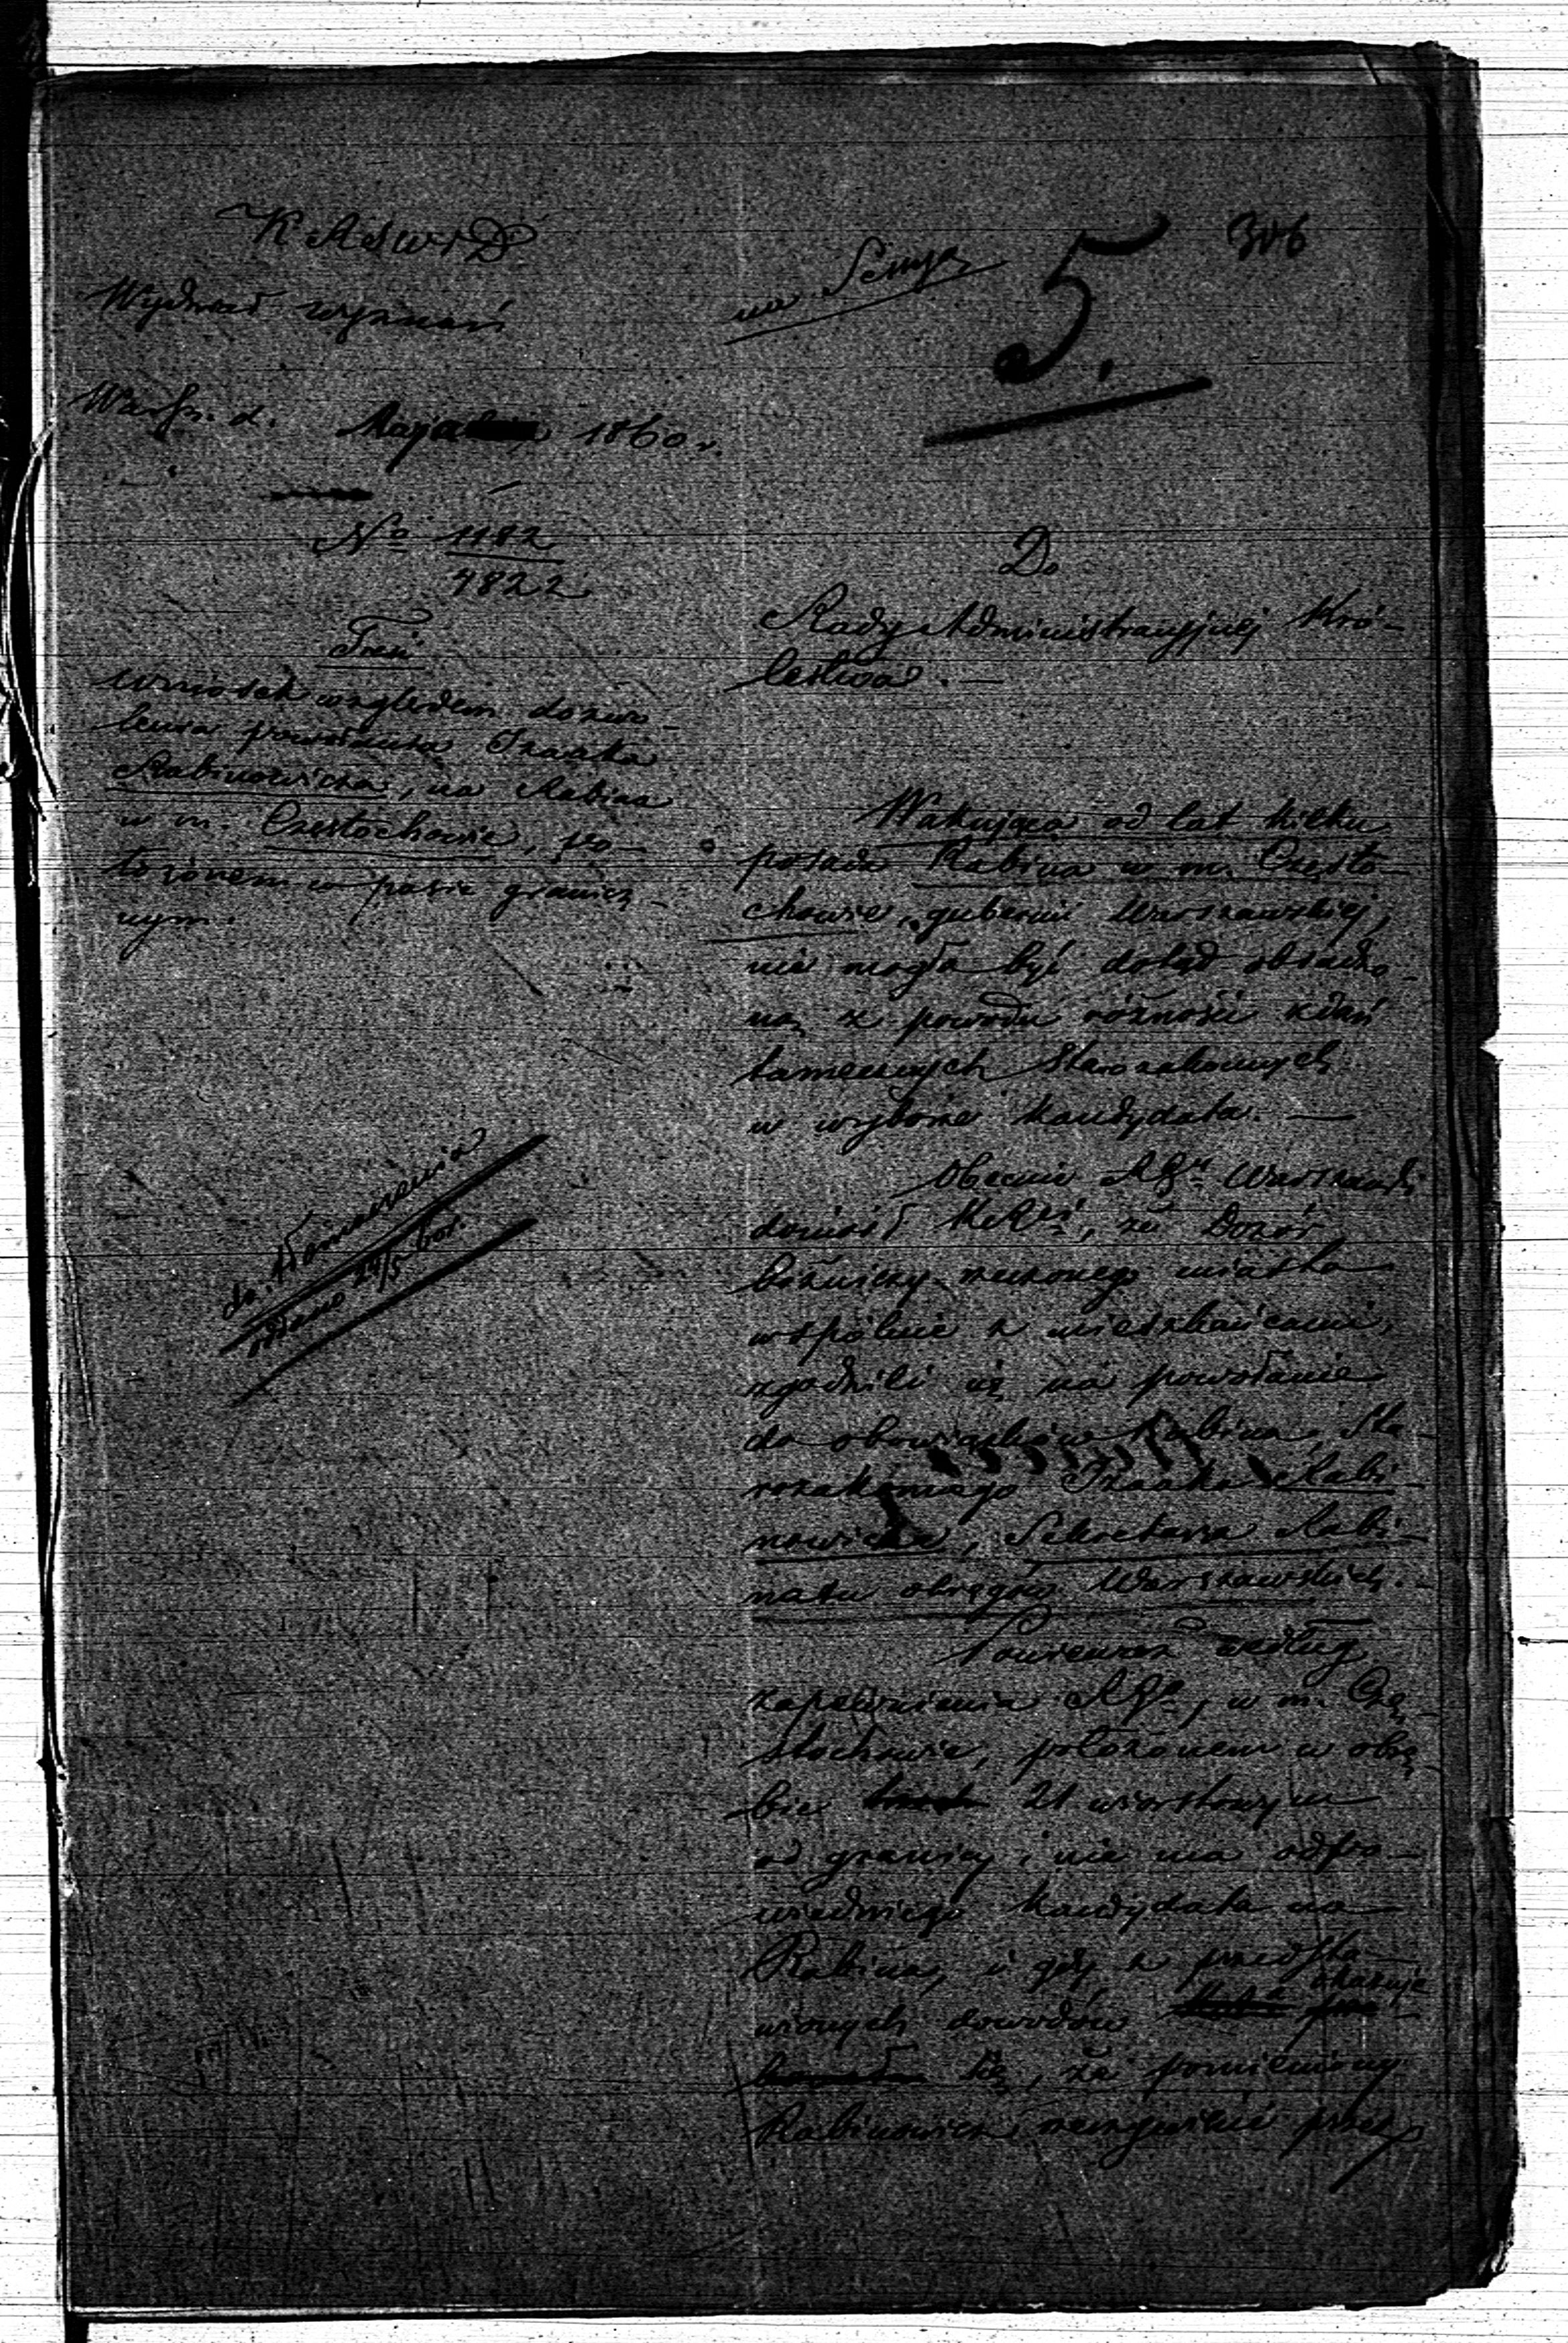 306
5.
na Sessyą
K R S W i D
Wydział wyznań
Warsz. d. Maja 1860 r.
No 1182
4822
Treść
Wniosek względem dozwo-
lenia powołania Izaaka
Rabinowicza, na Rabina
w m. Częstochowie, po-
łożonem w pasie granicz-
nym.
oddano 24/5 60 r.
Do
Rady Administracyjnej Kró-
lestwa. —
Wakująca od lat kilku
posada Rabina w m. Często-
chowie, gubernii Warszawskiej,
nie mogła być dotąd obsadzo-
ną z powodu różności zdań
tamecznych Starozakonnych
w wyborze kandydata. —
Obecnie RGu Warszawski
doniósł KRej, że Dozór
bóżniczy rzeczonego miasta
wspólnie z mieszkańcami,
zgodzili się na powołanie
do obowiązków Rabina, Sta-
rozakonnego Izaaka Rabi-
nowicza, Sekretarza Rabi-
natu okręgów Warszawskich. —
Ponieważ według
zapewnienia RGo, w m. Czę-
stochowie, położonem w obrę-
bie 21 wiorstowym
od granicy, nie ma odpo-
wiedniego kandydata na
Rabina, i gdy z przedsta-
wionych dowodów okazuje
się, że pomieniony
Rabinowicz, przez